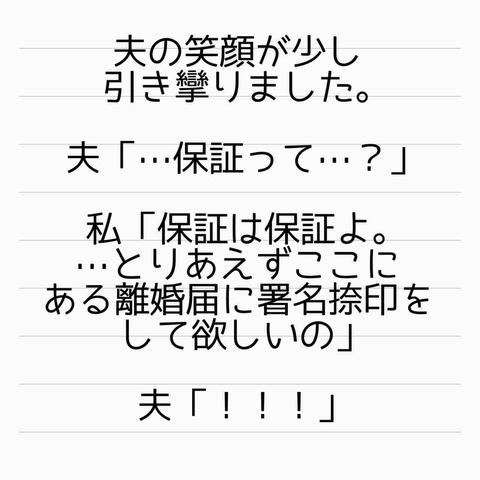 夫の笑顔が少し
引き攣りました。
夫「…保証って…？」
私「保証は保証よ。
…とりあえずここに
ある離婚届に署名捺印を
して欲しいの」
夫「！！！」